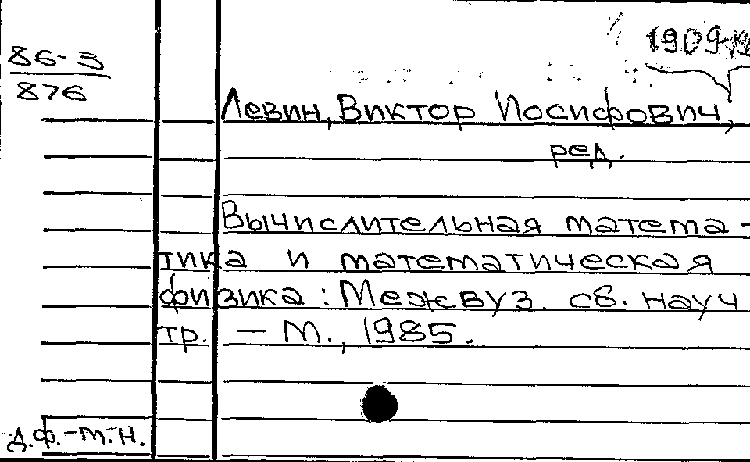 1909-
86-3
876
Левин, Виктор Иосифович,
ред.
Вычислительная матема-
тика и математическая
физика: Межвуз. сб. науч
тр. — М., 1985.
д.ф.-м.н.